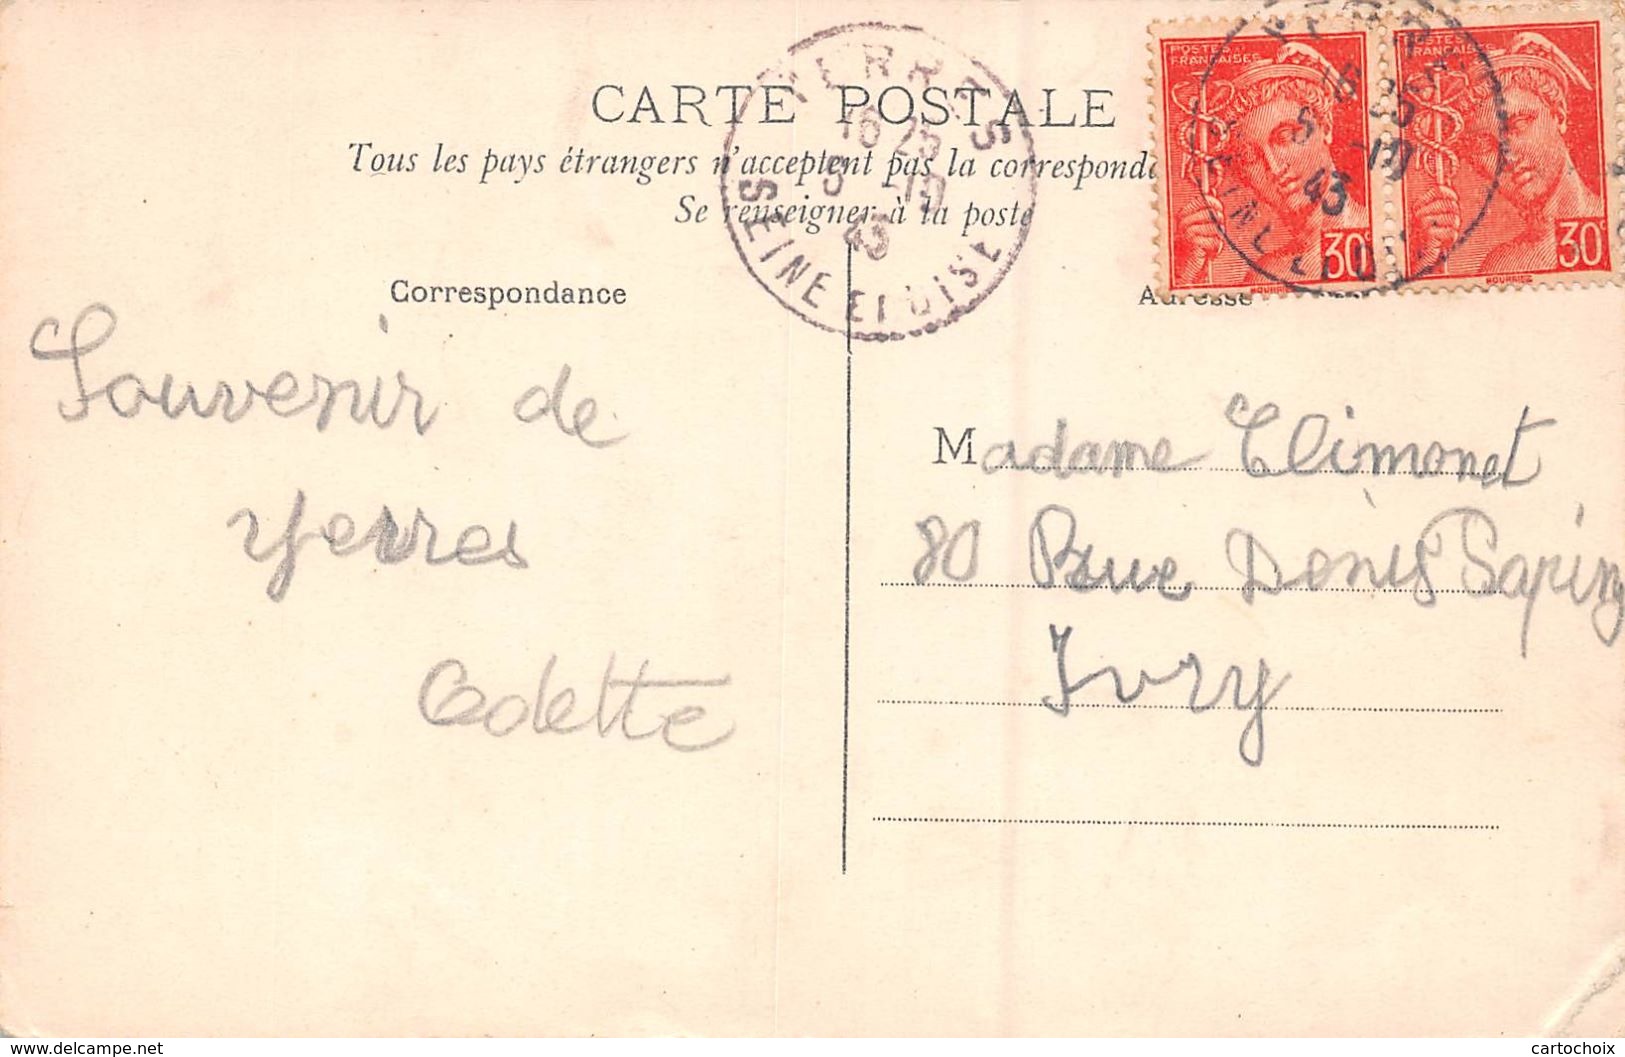 CARTE POSTALE
Tous les pays étrangers n'acceptent pas la correspond
Se renseigner à la poste
Correspondance
Adresse
Souvenir de
Yerres
Odette
Madame Climonet
80 Rue Denis Papin
Ivry
YERRES
16 25
5 -10
43
SEINE ET OISE
POSTES
FRANÇAISES
30c
POSTES
FRANÇAISES
30c
16 25
5 -10
43
www.delcampe.net
cartochoix